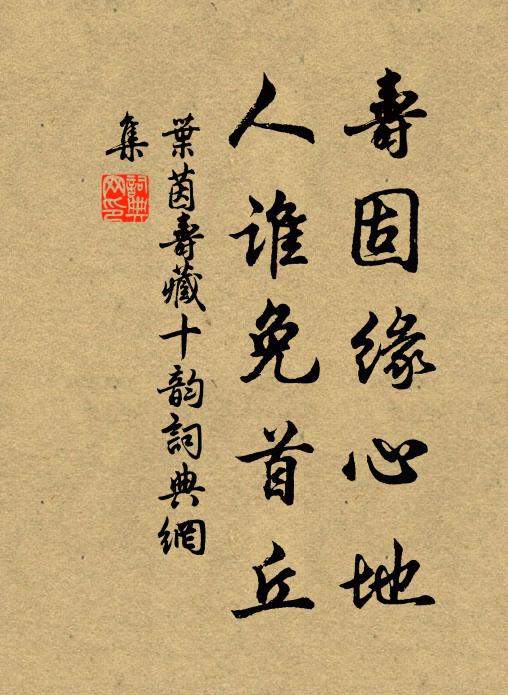 壽固緣心地
人誰免首丘
葉茵壽藏十韵詞典網
集
詞典網印